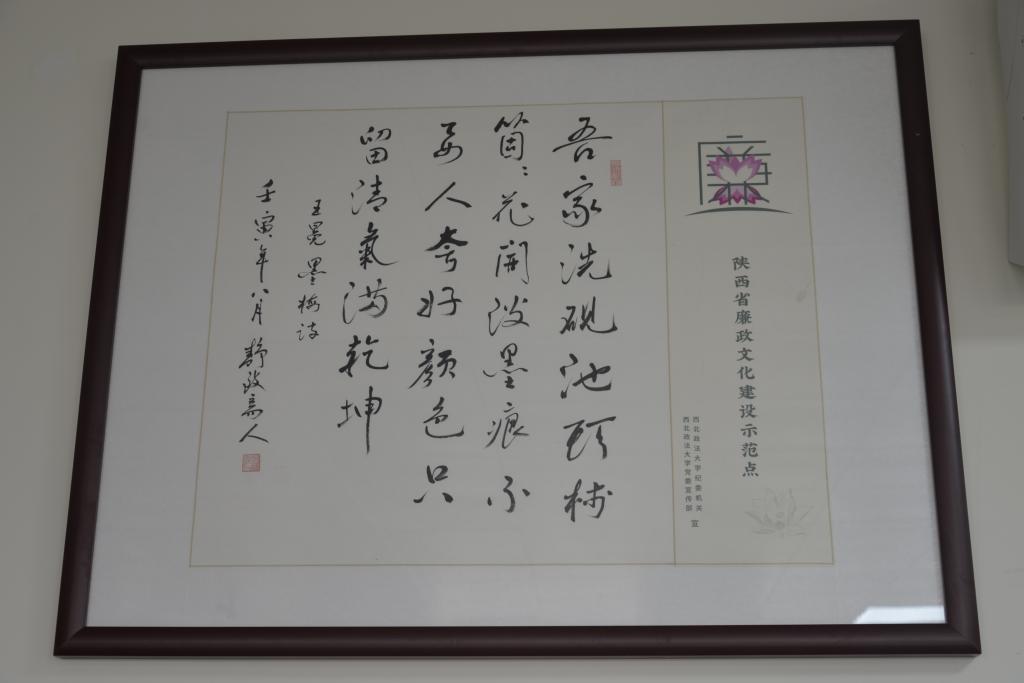 陕西省廉政文化建设示范点
西北政法大学纪委机关
西北政法大学党委宣传部
宣
吾家洗硯池頭樹
箇〻花開淡墨痕不
要人夸好顏色只
留清氣滿乾坤
王冕墨梅詩
壬寅年八月 靜 人